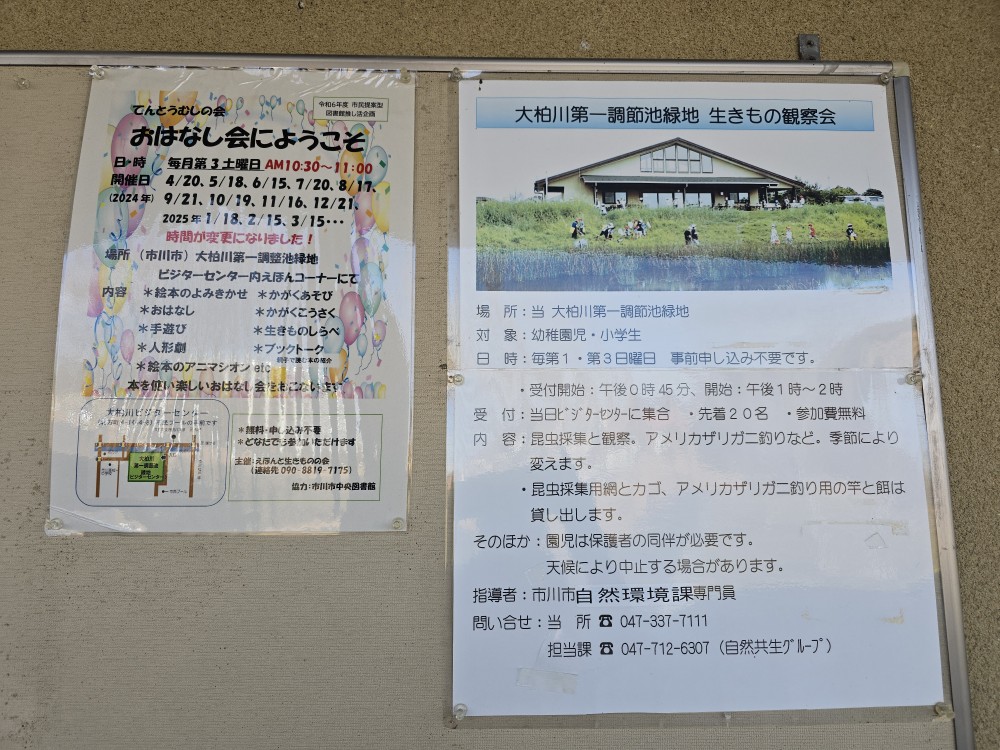 てんとうむしの会
令和6年度 市民提案型
図書館推し活企画
おはなし会にようこそ
日・時 毎月第3土曜日 AM10:30～11:00
開催日 4/20、5/18、6/15、7/20、8/17、
(2024年) 9/21、10/19、11/16、12/21、
2025年 1/18、2/15、3/15・・・
時間が変更になりました！
場所 (市川市) 大柏川第一調整池緑地
ビジターセンター内えほんコーナーにて
内容 ＊絵本のよみきかせ ＊かがくあそび
＊おはなし ＊かがくこうさく
＊手遊び ＊生きものしらべ
＊人形劇 ＊ブックトーク
＊絵本のアニマシオン etc
本を使い楽しいおはなし会を
大柏川ビジターセンター
大柏川
第一調節池
緑地
ビジターセンター
＊無料・申し込み不要
＊どなたでも参加いただけます
主催：えほんと生きものの会
(連絡先 090-8819-7175)
協力：市川市中央図書館
大柏川第一調節池緑地 生きもの観察会
場 所：当 大柏川第一調節池緑地
対 象：幼稚園児・小学生
日 時：毎第１・第３日曜日 事前申し込み不要です。
・受付開始：午後０時45分、開始：午後１時～２時
受 付：当日ﾋﾞｼﾞﾀｰｾﾝﾀｰに集合 ・先着２０名 ・参加費無料
内 容：昆虫採集と観察。アメリカザリガニ釣りなど。季節により
変えます。
・昆虫採集用網とカゴ、アメリカザリガニ釣り用の竿と餌は
貸し出します。
そのほか：園児は保護者の同伴が必要です。
天候により中止する場合があります。
指導者：市川市自然環境課専門員
問い合せ：当 所 ☎ 047-337-7111
担当課 ☎ 047-712-6307（自然共生ｸﾞﾙｰﾌﾟ）